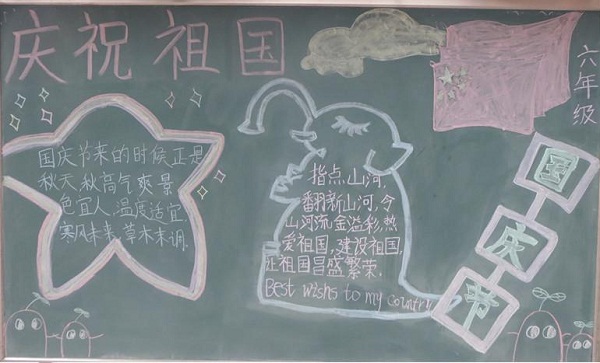 庆祝祖国
六年级
国庆节来的时候正是
秋天,秋高气爽,景
色宜人,温度适宜
寒风未来,草木未凋.
指点山河,
翻新山河,今
山河流金溢彩,热
爱祖国,建设祖国,
正祖国昌盛繁荣.
Best wishs to my country
国
庆
节